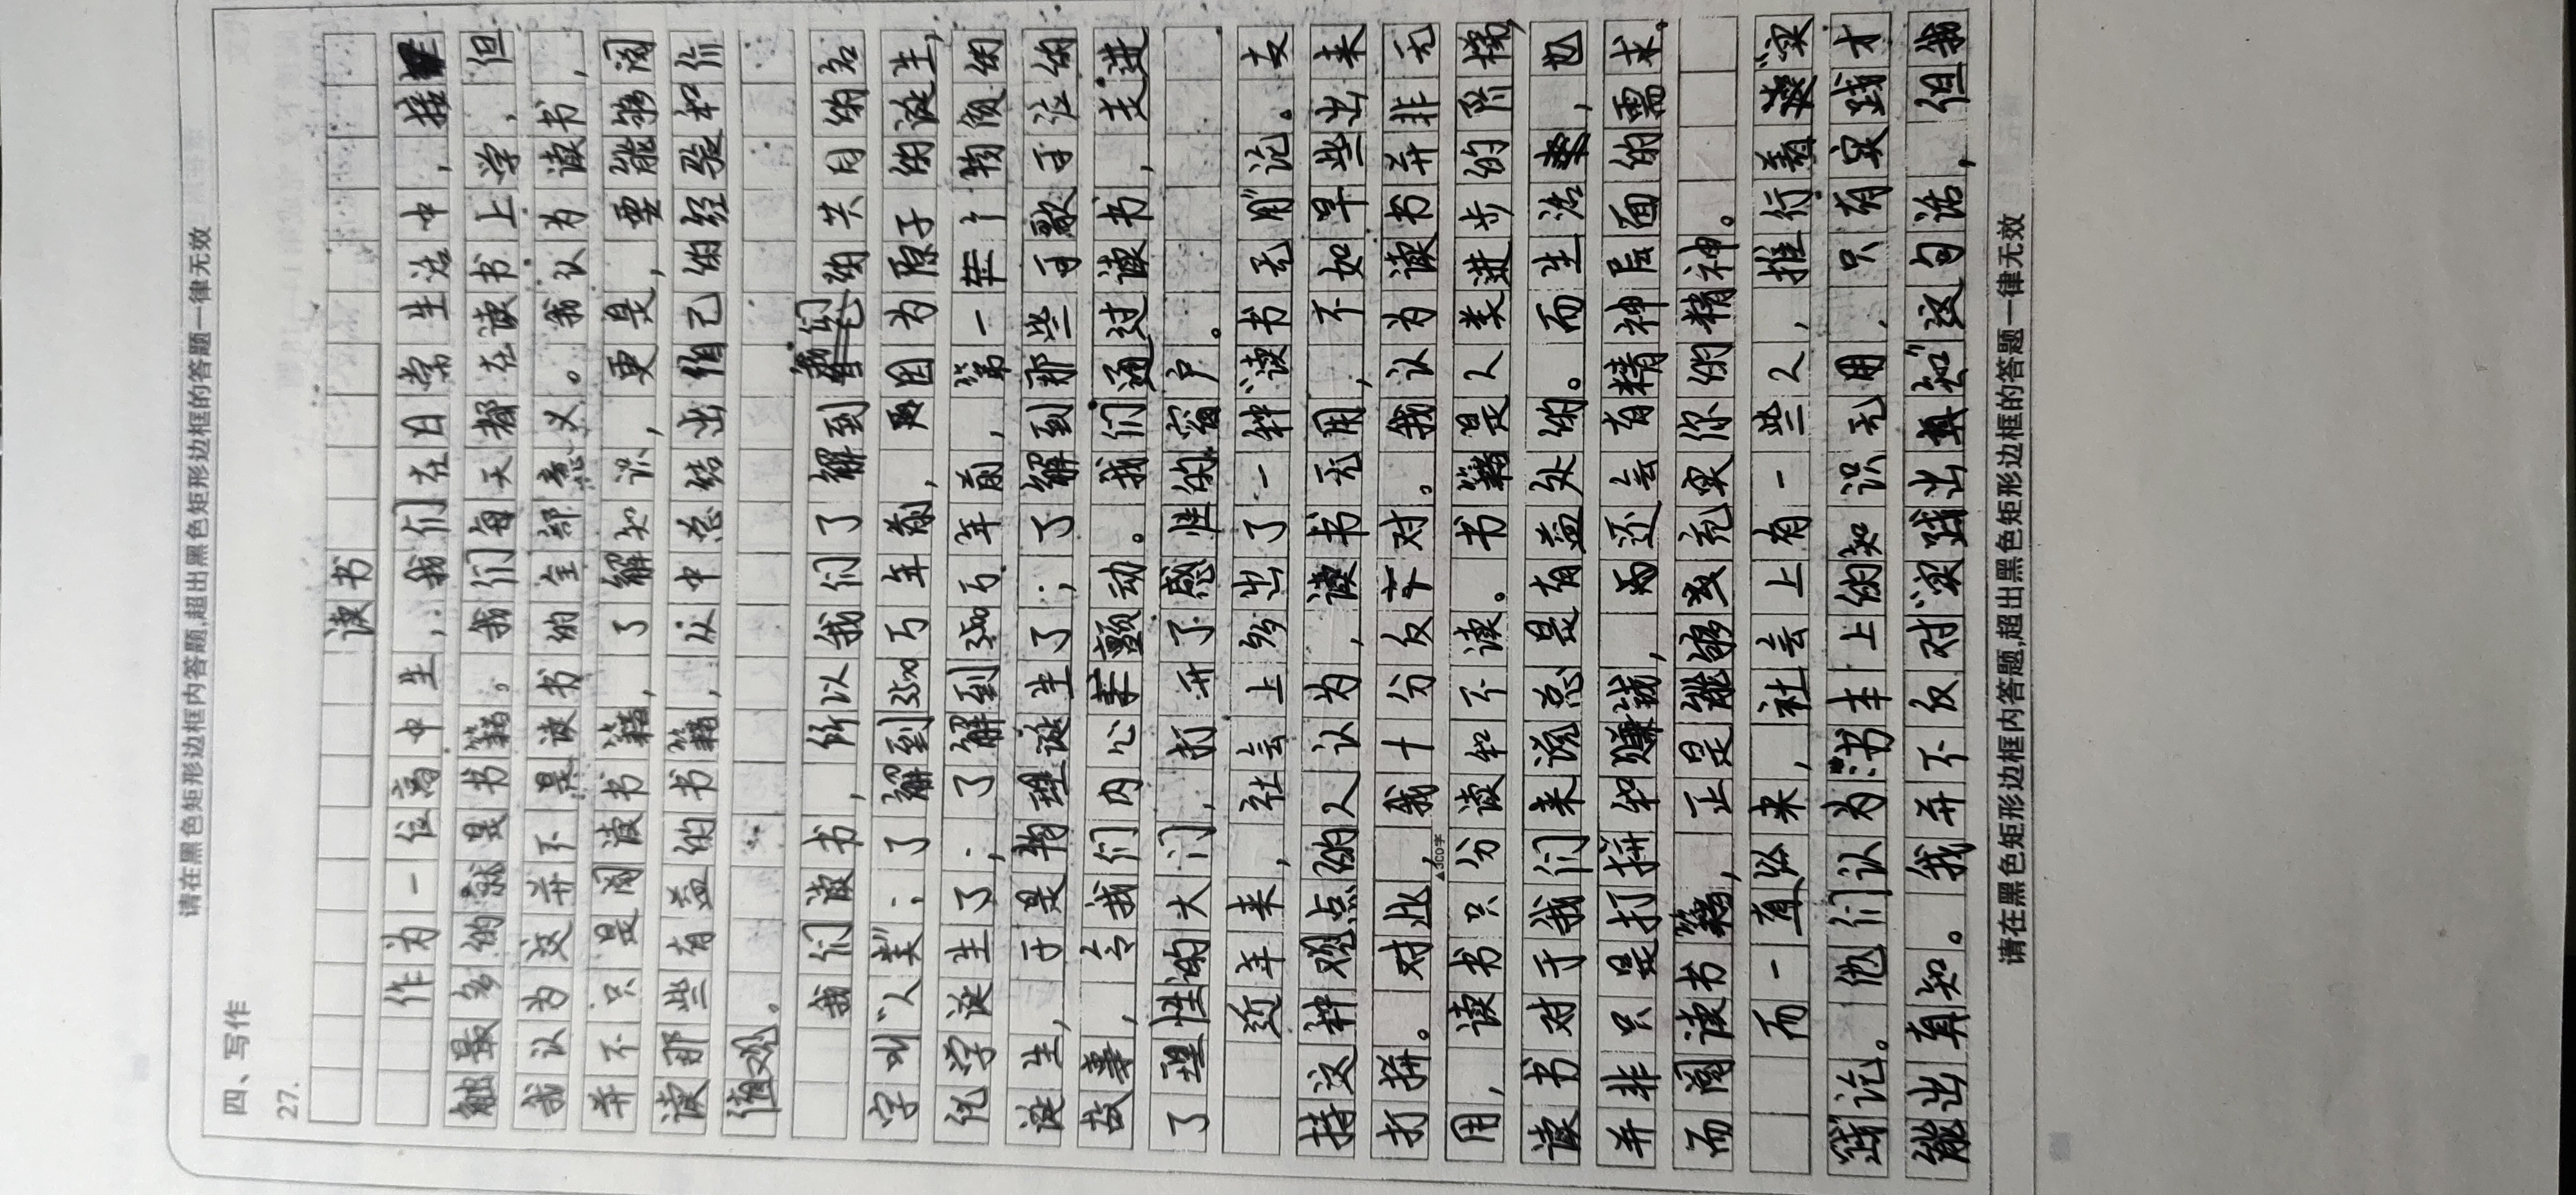 请在黑色矩形边框内答题,超出黑色矩形边框的答题一律无效
四、写作
27.
读书
作为一位高中生,我们在日常生活中,接
触最多的就是书籍。我们每天都在读书上学,但
我认为这并不是读书的全部意义。我认为读书,
并不只是阅读书籍,了解知识,更是,要能够阅
读那些有益的书籍,从中总结出自己的经验和作
值观。
我们读书,所以我们了解到我们的共用的名
字叫"人类";了解到350万年前,因为原子的诞生,
化学诞生了;了解到350万年前,第一车个物质的
诞生,于是物理诞生了;了解到那些可歌可泣的
故事,令我们内心颤动。我们通过读书,走进
了理性的大门,打开了感性的窗户。
近年来,社会上多出了一种"读书无用"论。支
持这种观点的人认为,读书无用,不如早些出来
打拼。对此,我十分反对。我认为读书并非无
用,读书只分读和不读。书籍是人类进步的阶梯,
读书对于我们来说总是有益处的。而生活,也
并非只是打拼和赚钱,还会有精神层面的需求。
而阅读书籍,正是能够充实你的精神。
而一直以来,社会上有一些人,推行着"实
践"论。他们认为书本上的知识无用,只有实践才
能出真知。我并不反对"实践出真知"这句话,但我
▲300字
请在黑色矩形边框内答题,超出黑色矩形边框的答题一律无效